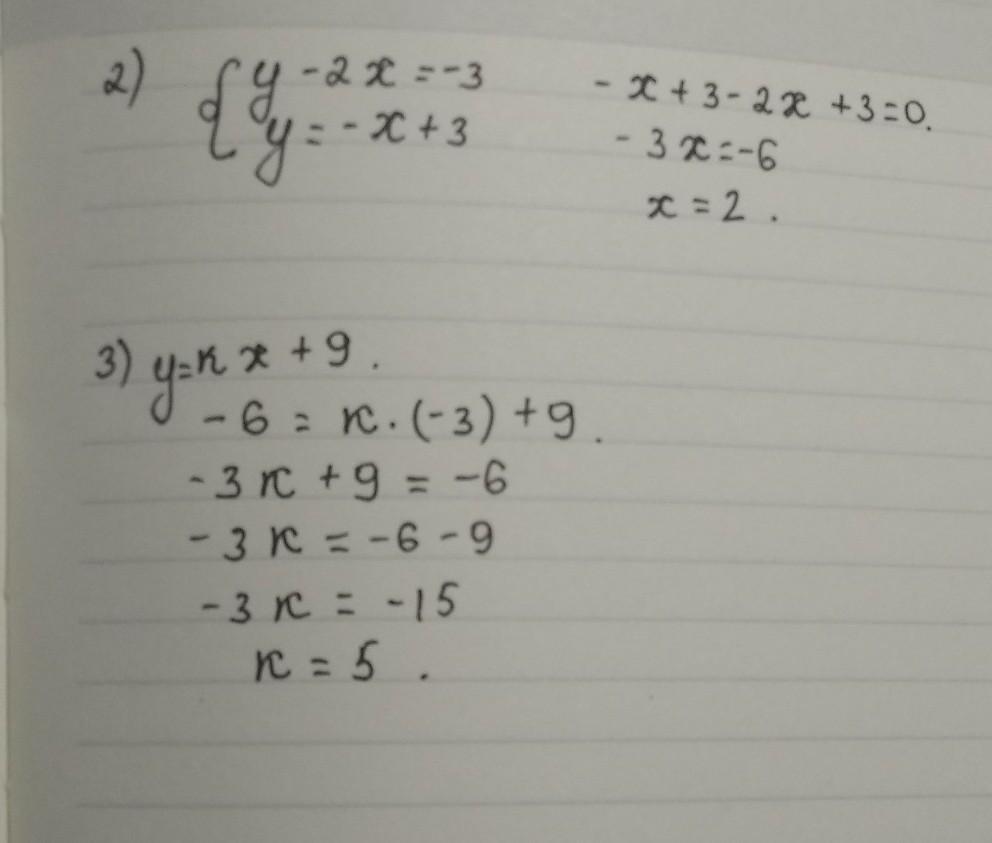 2) { y - 2x = -3
y = -x + 3
-x + 3 - 2x + 3 = 0.
-3x = -6
x = 2.
3) y = кx + 9.
-6 = к · (-3) + 9.
-3к + 9 = -6
-3к = -6 - 9
-3к = -15
к = 5.